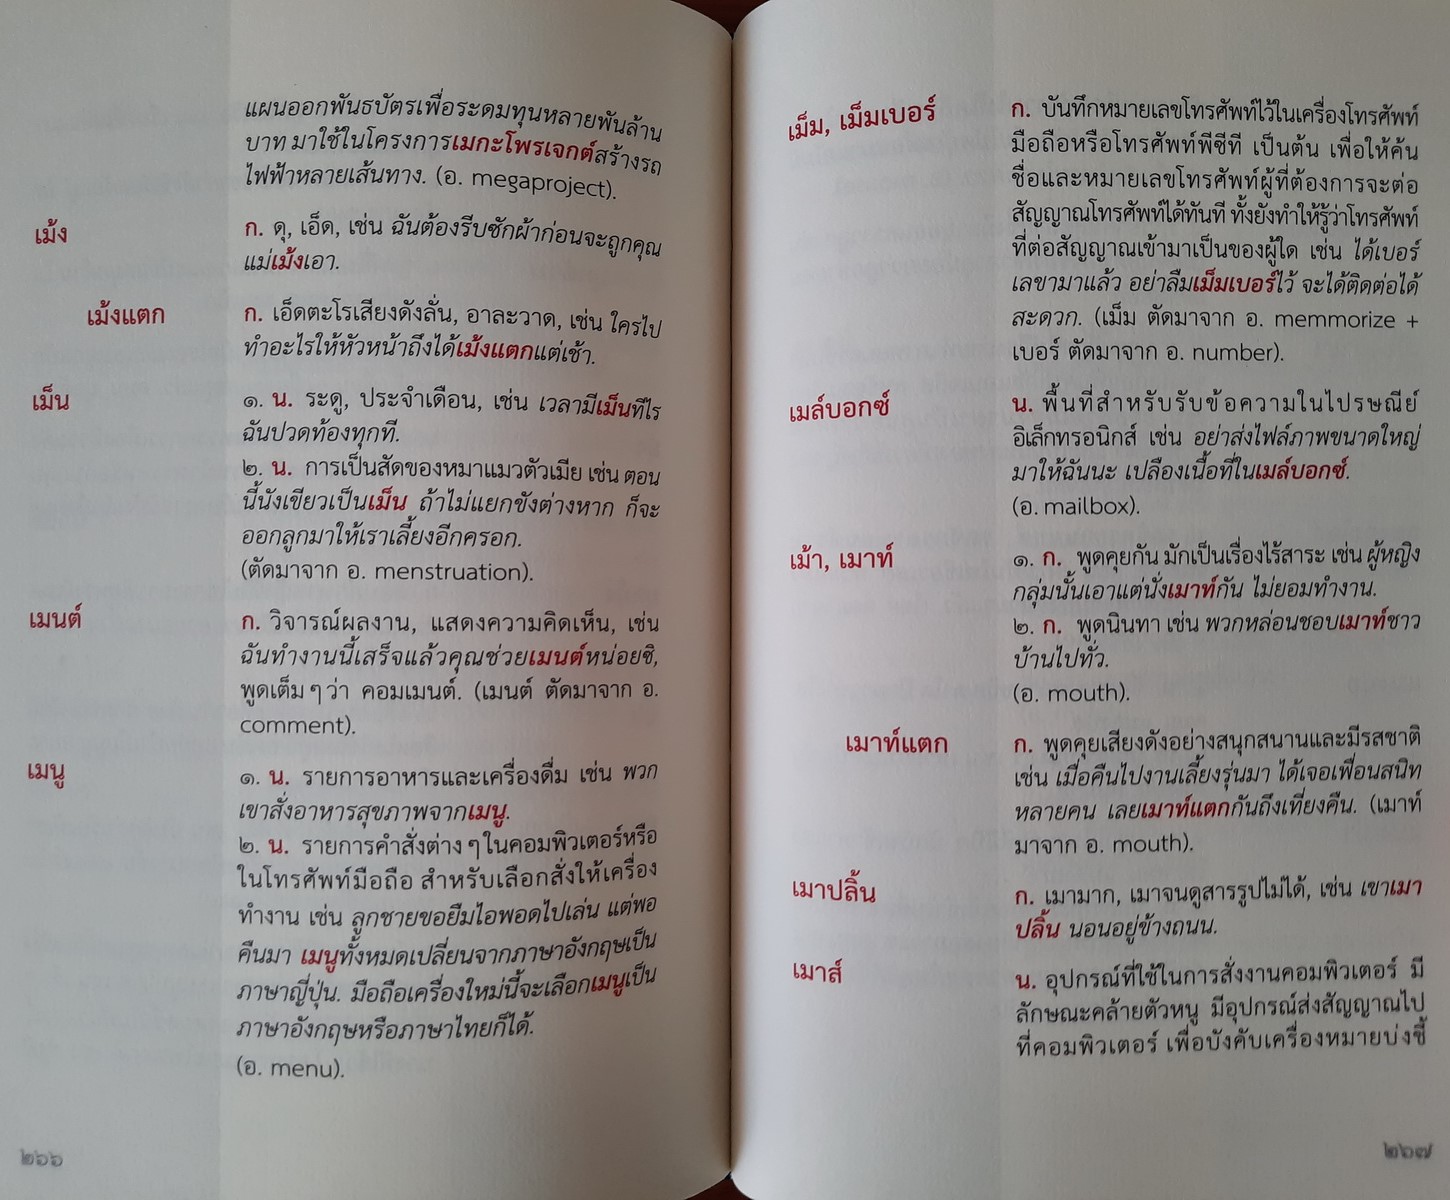 แผนออกพันธบัตรเพื่อระดมทุนหลายพันล้าน
บาท มาใช้ในโครงการเมกะโพรเจกต์สร้างรถ
ไฟฟ้าหลายเส้นทาง. (อ. megaproject).
เม้ง ก. ดุ, เอ็ด, เช่น ฉันต้องรีบซักผ้าก่อนจะถูกคุณ
แม่เม้งเอา.
เม้งแตก ก. เอ็ดตะโรเสียงดังลั่น, อาละวาด, เช่น ใครไป
ทำอะไรให้หัวหน้าถึงได้เม้งแตกแต่เช้า.
เม็น ๑. น. ระดู, ประจำเดือน, เช่น เวลามีเม็นทีไร
ฉันปวดท้องทุกที.
๒. น. การเป็นสัดของหมาแมวตัวเมีย เช่น ตอน
นี้นังเขียวเป็นเม็น ถ้าไม่แยกขังต่างหาก ก็จะ
ออกลูกมาให้เราเลี้ยงอีกครอก.
(ตัดมาจาก อ. menstruation).
เมนต์ ก. วิจารณ์ผลงาน, แสดงความคิดเห็น, เช่น
ฉันทำงานนี้เสร็จแล้วคุณช่วยเมนต์หน่อยซิ,
พูดเต็ม ๆ ว่า คอมเมนต์. (เมนต์ ตัดมาจาก อ.
comment).
เมนู ๑. น. รายการอาหารและเครื่องดื่ม เช่น พวก
เขาสั่งอาหารสุขภาพจากเมนู.
๒. น. รายการคำสั่งต่าง ๆ ในคอมพิวเตอร์หรือ
ในโทรศัพท์มือถือ สำหรับเลือกสั่งให้เครื่อง
ทำงาน เช่น ลูกชายขอยืมไอพอดไปเล่น แต่พอ
คืนมา เมนูทั้งหมดเปลี่ยนจากภาษาอังกฤษเป็น
ภาษาญี่ปุ่น. มือถือเครื่องใหม่นี้จะเลือกเมนูเป็น
ภาษาอังกฤษหรือภาษาไทยก็ได้.
(อ. menu).
๒๖๖
เม็ม, เม็มเบอร์ ก. บันทึกหมายเลขโทรศัพท์ไว้ในเครื่องโทรศัพท์
มือถือหรือโทรศัพท์พีซีที เป็นต้น เพื่อให้ค้น
ชื่อและหมายเลขโทรศัพท์ผู้ที่ต้องการจะต่อ
สัญญาณโทรศัพท์ได้ทันที ทั้งยังทำให้รู้ว่าโทรศัพท์
ที่ต่อสัญญาณเข้ามาเป็นของผู้ใด เช่น ได้เบอร์
เลขามาแล้ว อย่าลืมเม็มเบอร์ไว้ จะได้ติดต่อได้
สะดวก. (เม็ม ตัดมาจาก อ. memmorize +
เบอร์ ตัดมาจาก อ. number).
เมล์บอกซ์ น. พื้นที่สำหรับรับข้อความในไปรษณีย์
อิเล็กทรอนิกส์ เช่น อย่าส่งไฟล์ภาพขนาดใหญ่
มาให้ฉันนะ เปลืองเนื้อที่ในเมล์บอกซ์.
(อ. mailbox).
เม้า, เมาท์ ๑. ก. พูดคุยกัน มักเป็นเรื่องไร้สาระ เช่น ผู้หญิง
กลุ่มนั้นเอาแต่นั่งเมาท์กัน ไม่ยอมทำงาน.
๒. ก. พูดนินทา เช่น พวกหล่อนชอบเมาท์ชาว
บ้านไปทั่ว.
(อ. mouth).
เมาท์แตก ก. พูดคุยเสียงดังอย่างสนุกสนานและมีรสชาติ
เช่น เมื่อคืนไปงานเลี้ยงรุ่นมา ได้เจอเพื่อนสนิท
หลายคน เลยเมาท์แตกกันถึงเที่ยงคืน. (เมาท์
มาจาก อ. mouth).
เมาปลิ้น ก. เมามาก, เมาจนดูสารรูปไม่ได้, เช่น เขาเมา
ปลิ้น นอนอยู่ข้างถนน.
เมาส์ น. อุปกรณ์ที่ใช้ในการสั่งงานคอมพิวเตอร์ มี
ลักษณะคล้ายตัวหนู มีอุปกรณ์ส่งสัญญาณไป
ที่คอมพิวเตอร์ เพื่อบังคับเครื่องหมายบ่งชี้
๒๖๗